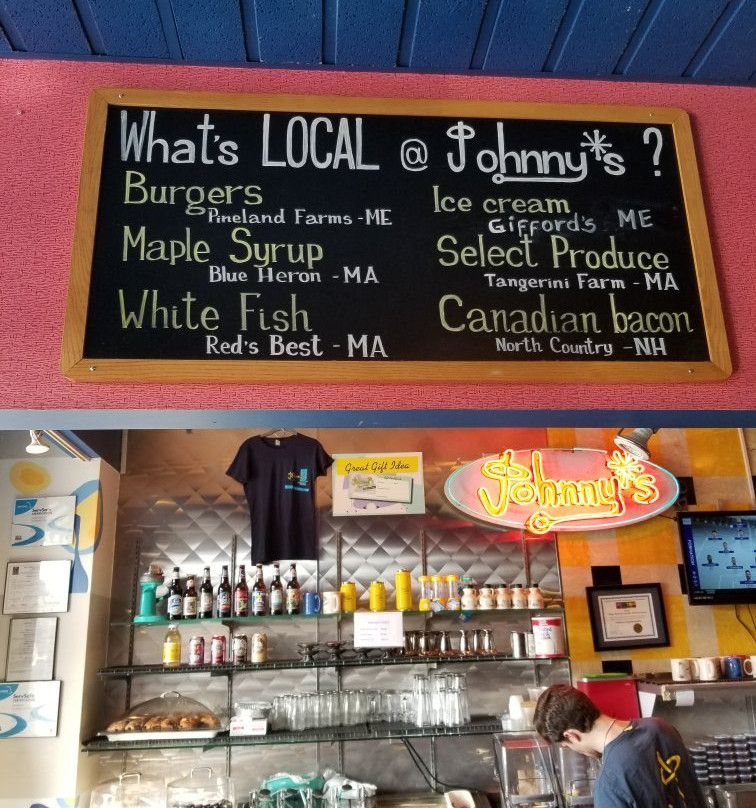 What's LOCAL @ Johnny*s ?
Burgers
Pineland Farms - ME
Maple Syrup
Blue Heron - MA
White Fish
Red's Best - MA
Ice cream
Gifford's ME
Select Produce
Tangerini Farm - MA
Canadian bacon
North Country - NH
Great Gift Idea
Johnny*s
ServSafe
ServSafe